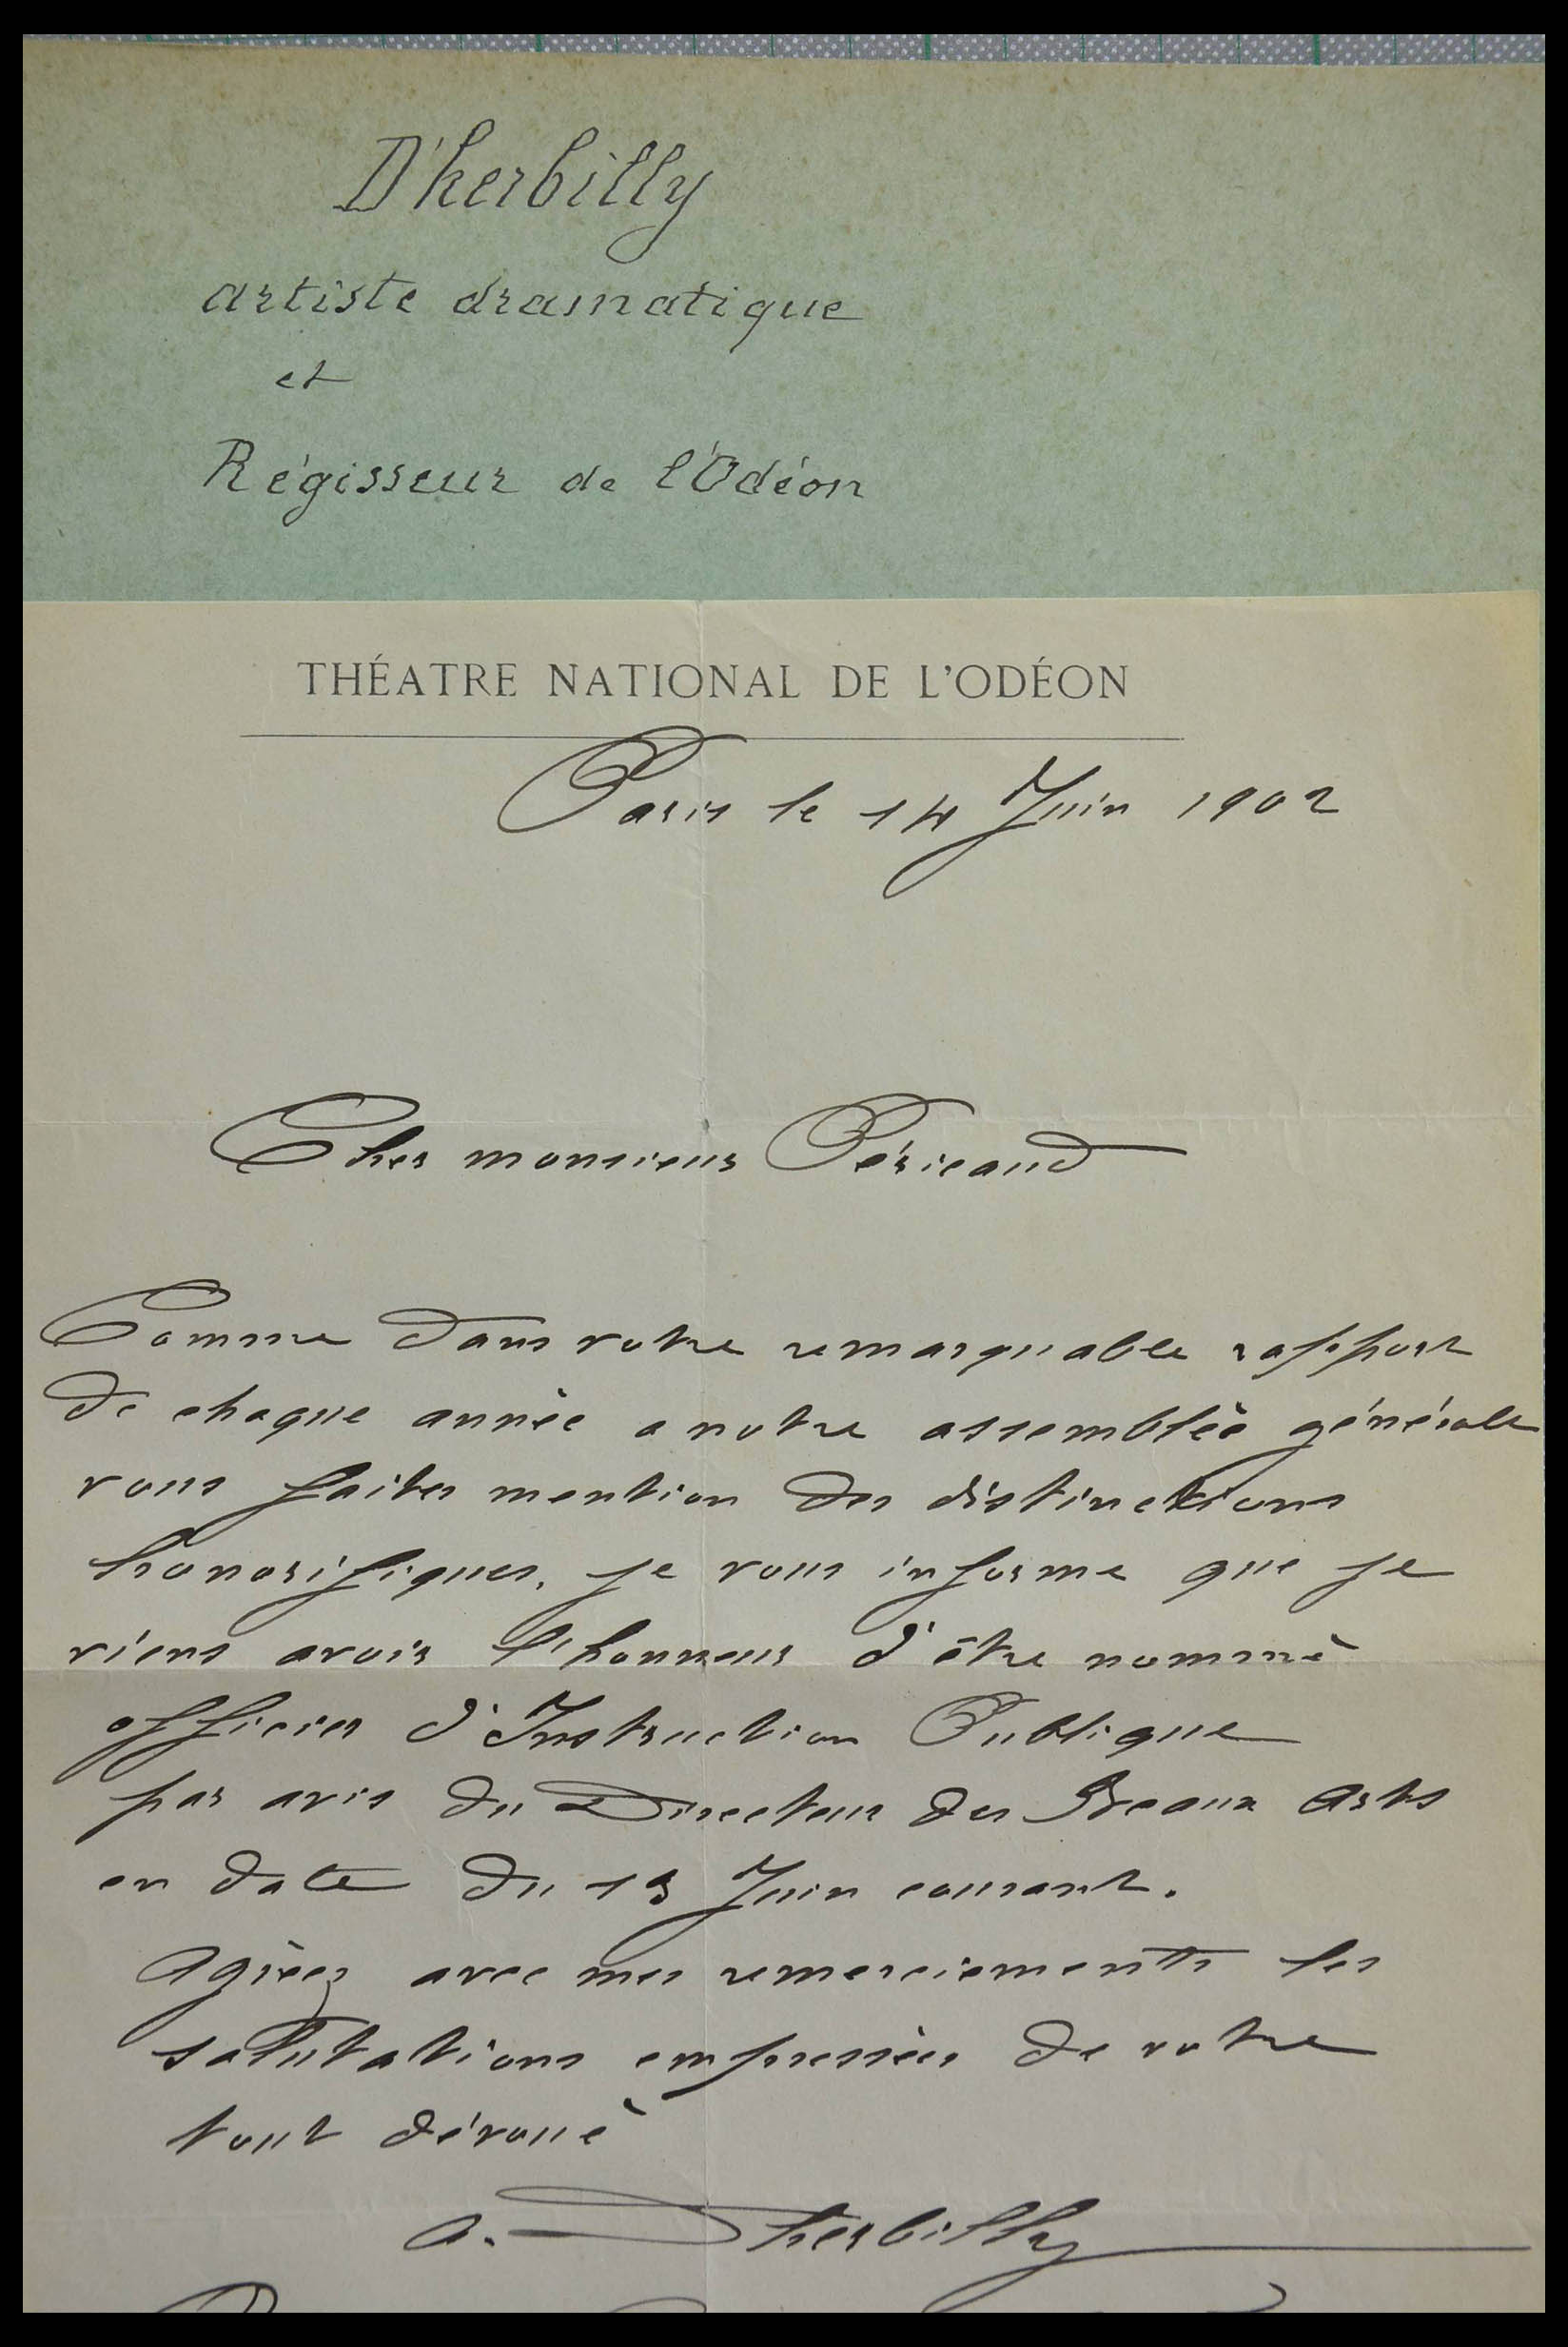 D'herbilly
artiste dramatique
et
Régisseur de l'Odéon
THÉATRE NATIONAL DE L'ODÉON
Paris le 14 Juin 1902
Cher monsieur Péricaud
Comme dans votre remarquable rapport
de chaque année a notre assemblée générale
vous faites mention des distinctions
honorifiques, je vous informe que je
viens avoir l'honneur d'être nommé
officier d'Instruction Publique
par avis du Directeur des Beaux Arts
en date du 13 Juin courant.
Agréez avec mes remerciements les
salutations empressées de votre
tout dévoué
a. Dherbilly